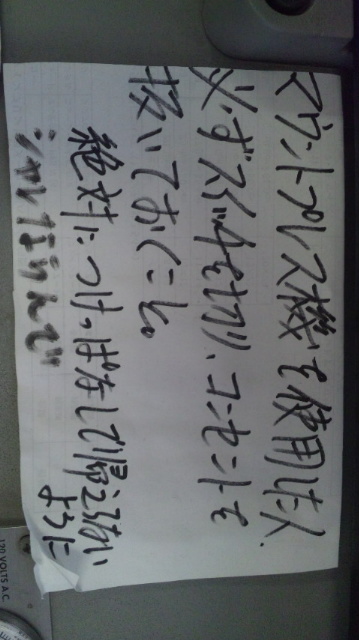 マウントプレス機を使用した人、
必ずスイッチを切り、コンセントを
抜いておくこと。
絶対につけっぱなしで帰らない
ように
120 VOLTS A.C.